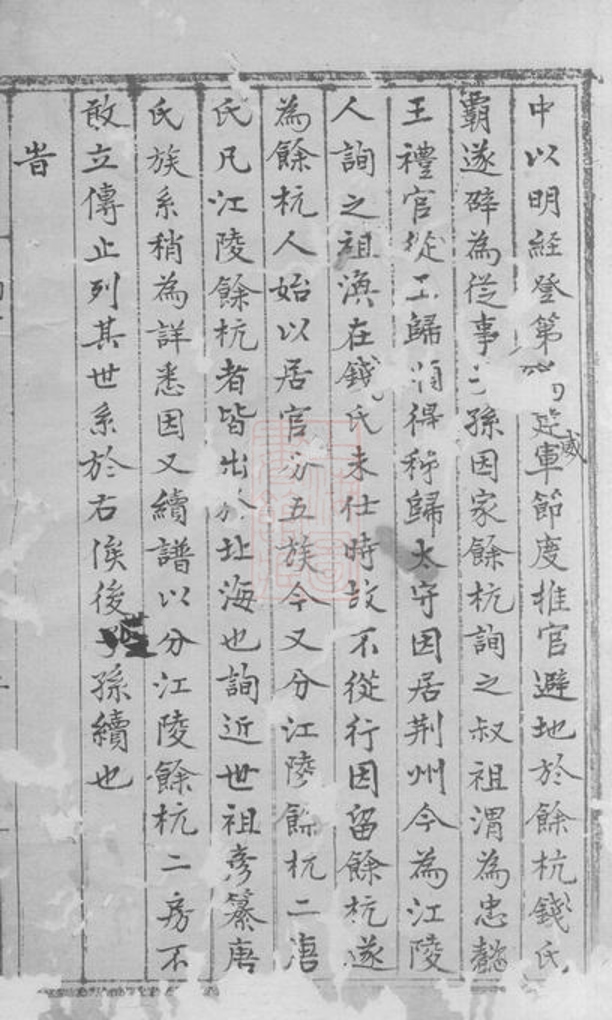 中以明經登第威建軍節度推官避地於餘杭錢氏
霸遂辟為從事子孫因家餘杭詢之叔祖渭為忠懿
王禮官從王歸順得稀歸太守因居荆州今為江陵
人詢之祖漁在錢氏未仕時故不從行因留餘杭遂
為餘杭人始以居官分五族今又分江陵餘杭二唐
氏凡江陵餘杭者皆出於北海也詢近世祖彥纂唐
氏族系稍為詳悉因又續譜以分江陵餘杭二房不
敢立傳止列其世系於右俟後孫續也
旹